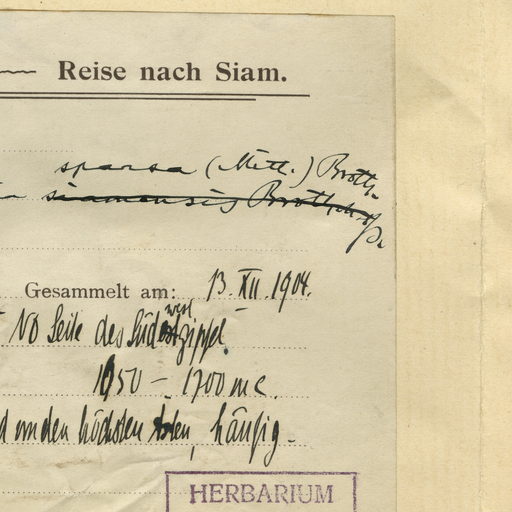 Reise nach Siam.
sparsa (Mitt.) Broth.
siamensis Broth. n. sp.
Gesammelt am: 13. XII. 1904.
NO Seite des Südwestzipfel.
1950 – 1700 m
an den höchsten, häufig.
HERBARIUM